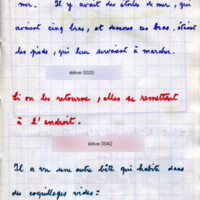 mer. Il y avait des étoiles de mer, qui
avaient cinq bras, et dessous ces bras, étaient
les pieds, qui leur servaient à marcher.
élève 0020
Si on les retourne, elles se remettent
à l'endroit.
élève 0042
Il a vu une autre bête qui habite dans
des coquillages vides :